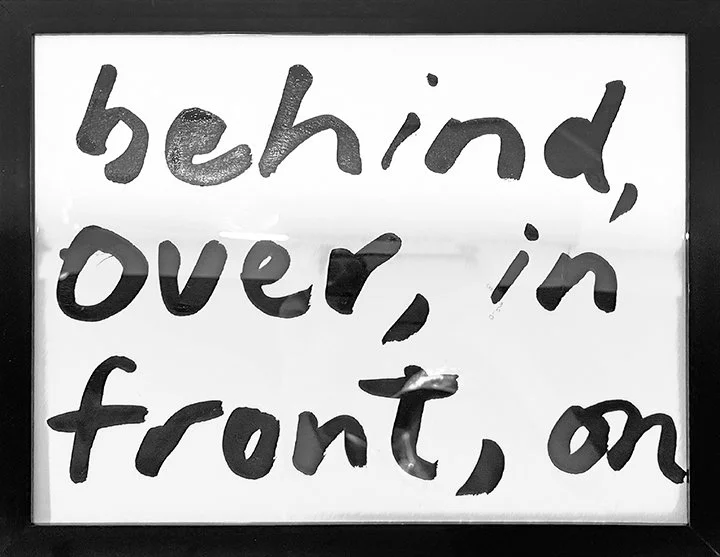 behind,
over, in
front, on